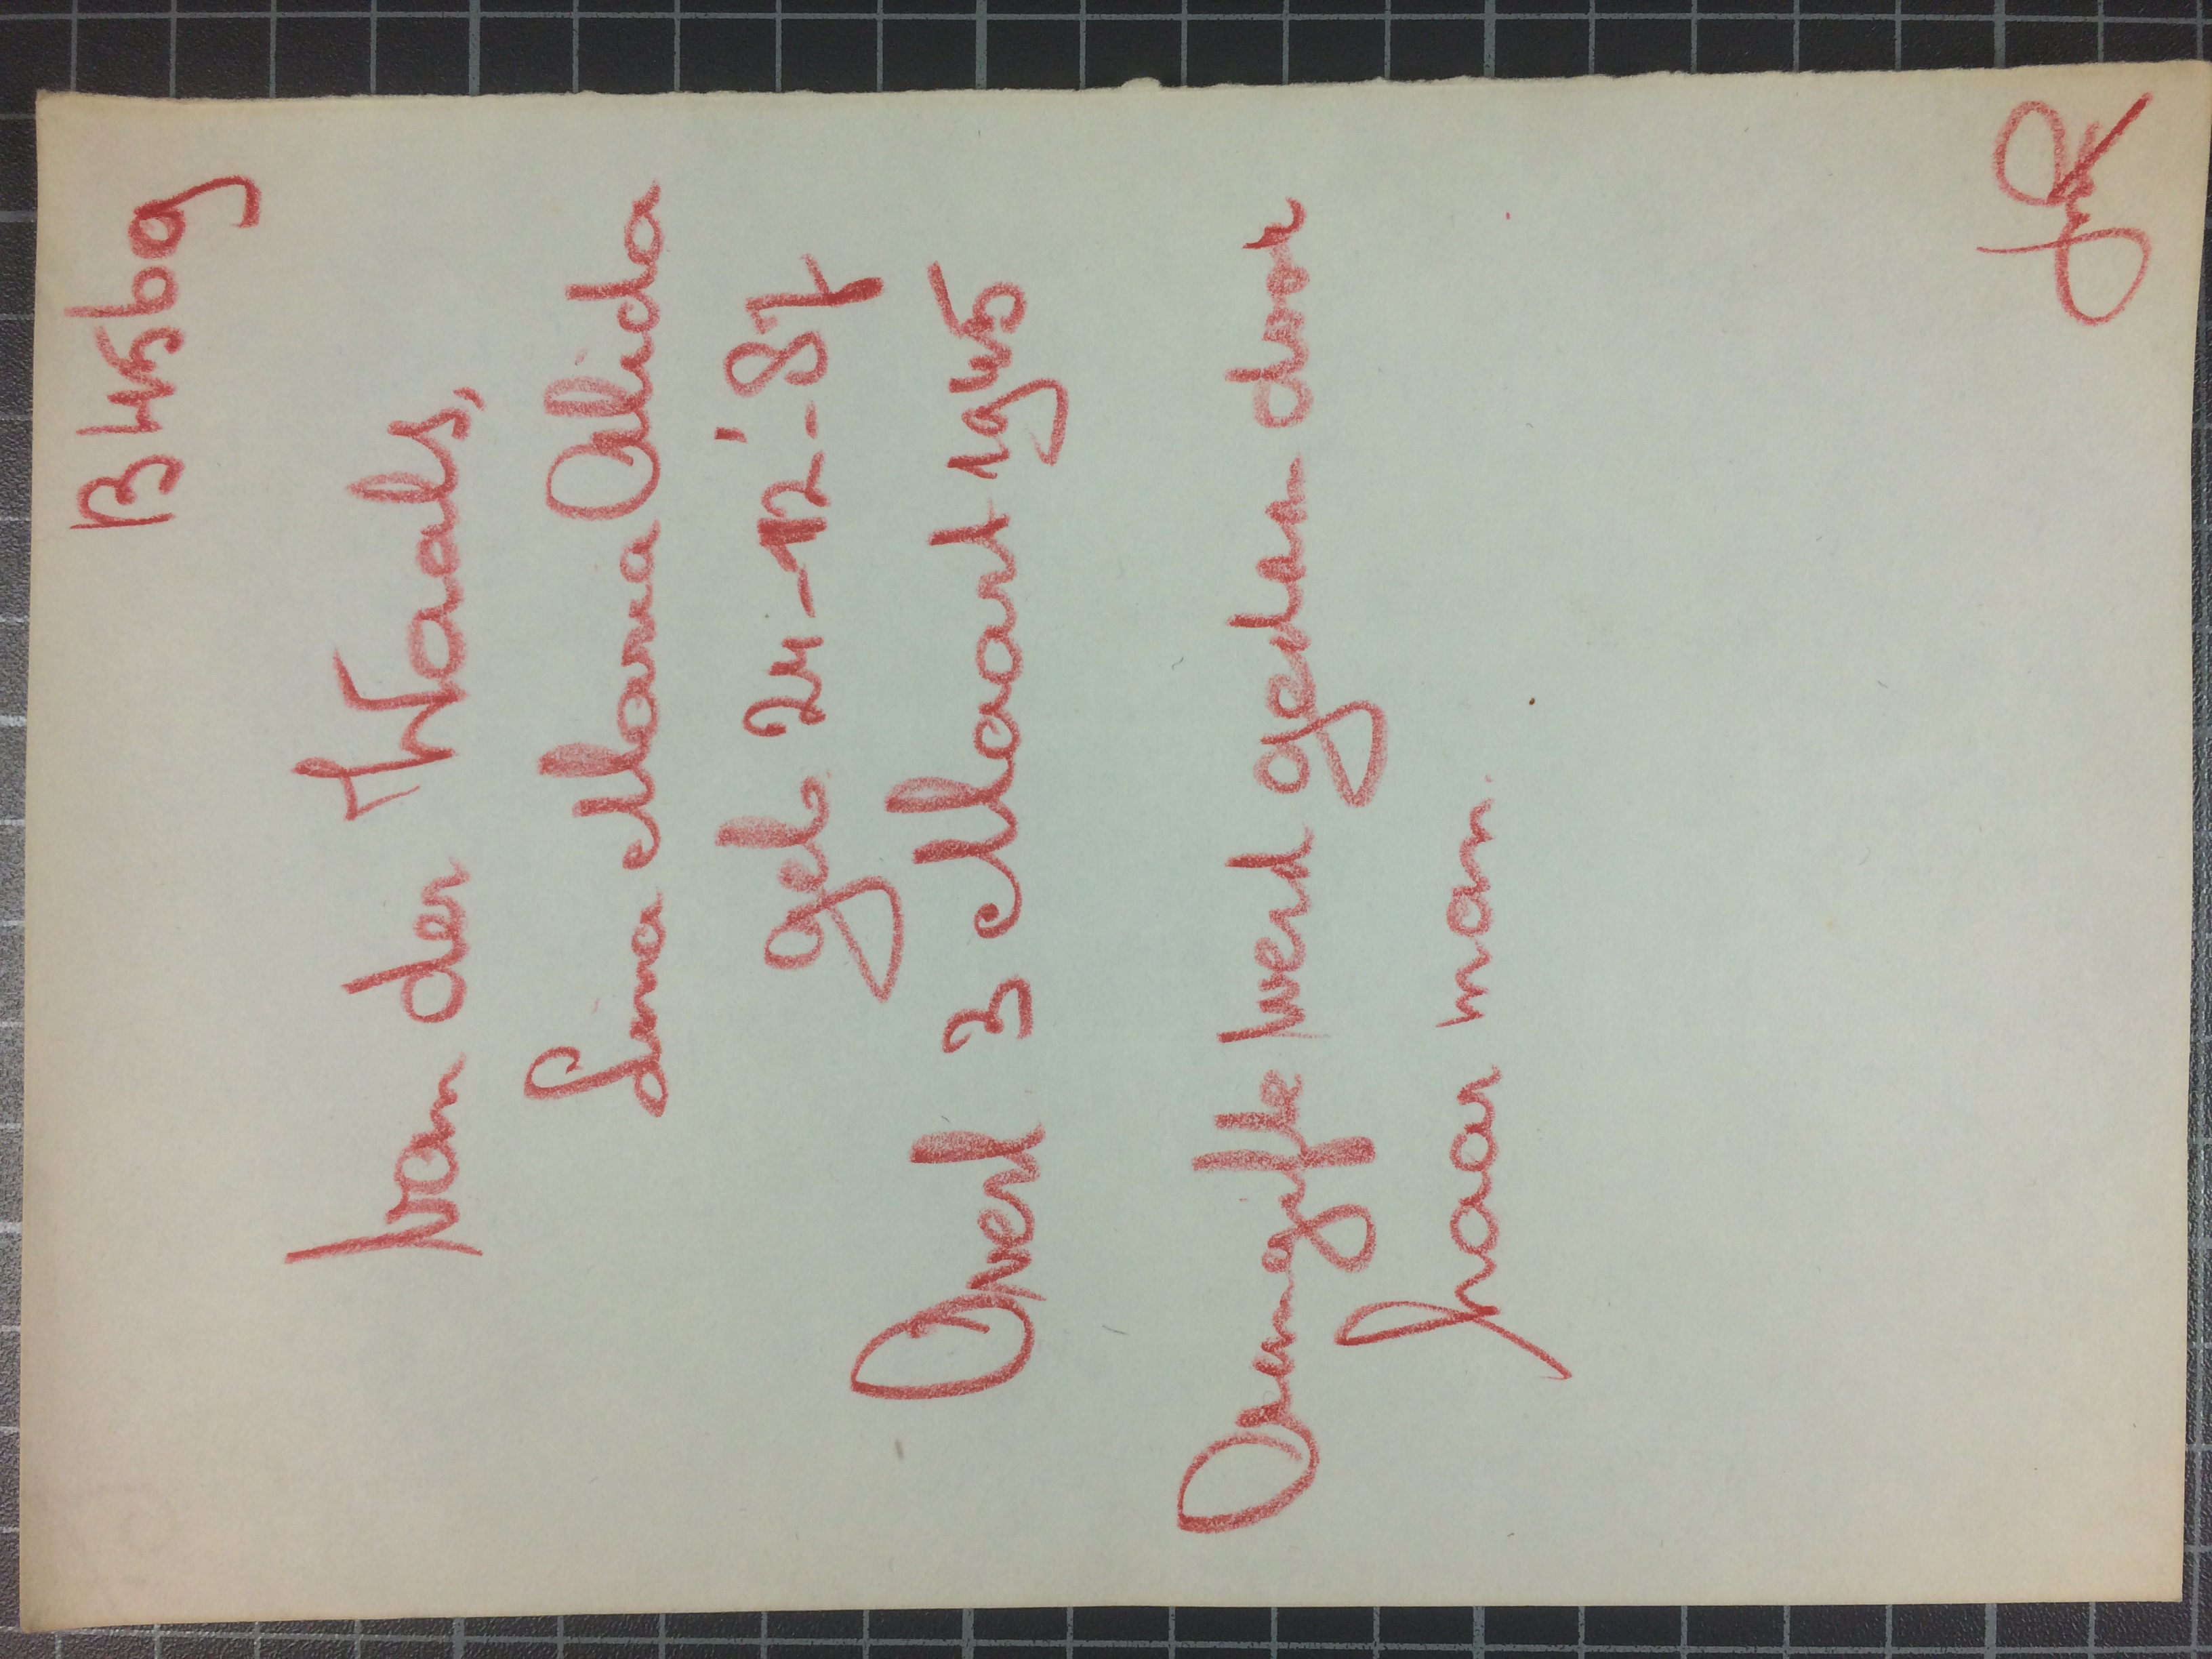 B 45609
van der Waals,
Lina Maria Alida
geb 24-12-'87
Overl 3 Maart 1945
Aangifte werd gedaan door
haar man.